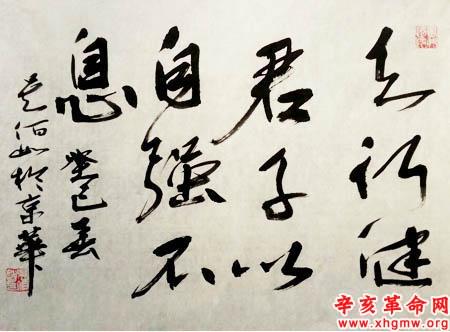 天行健
君子以
自强不
息 癸巳春
佰如於京華
辛亥革命网
www.xhgmw.org